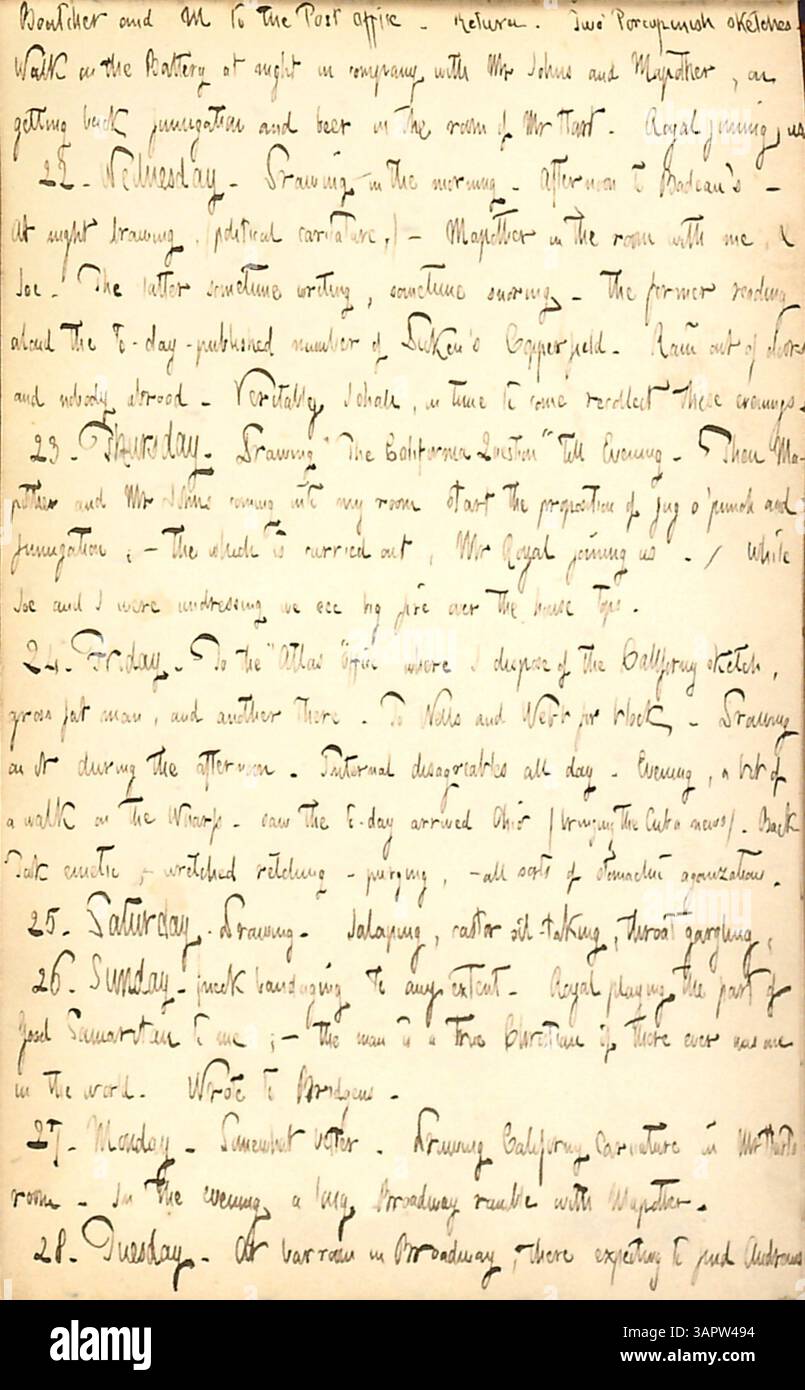 Boutcher and M to the Post Office - Return. Two Porcupinish sketches.
Walk on the Battery at night in company with Mr Johns and Mapother, on
getting back fumigation and beer in the room of Mr Hart. Royal joining us
22 - Wednesday - Drawing in the morning - Afternoon to Badeau's -
At night drawing, (political caricature,) - Mapother in the room with me, &
Joe - The latter sometime writing, sometime snoring, - the former reading
aloud the to-day-published number of Dicken's Copperfield. Rain out of doors
and nobody abroad - Veritably I shall, in time to come recollect these evenings.
23 - Thursday - Drawing "The California Question" till Evening - Then Ma-
pother and Mr Johns coming into my room start the proposition of jug o' punch and
fumigation, - the which is carried out, Mr Royal joining us . / While
Joe and I were undressing we see big fire over the house tops.
24. Friday - To the "Atlas" Office where I dispose of the Californy sketch,
gross fat man, and another there. To and Webb for block, - Drawing
on it during the afternoon - Internal disagreables all day - Evening, a bit of
a walk on the Wharfs - saw the to-day arrived Ohio (bringing the Cuba news). Back
Took emetic, - wretched retching - purging, - all sorts of stomachic agonizations.
25. Saturday . Drawing - Jalaping, castor oil-taking, throat gargling,
26. Sunday - neck bandaging to any extent - Royal playing the part of
Good Samaritan to me ; - the man is a true Christian if there ever was one
in the world. Wrote to Bridgens -
27. Monday - Somewhat better - Drawing Californy Caricature in Mr Harts
room - In the evening a long Broadway ramble with Mapother.
28. Tuesday - At bar room in Broadway, there expecting to find Andrews
alamy
Image ID: 3APW494
www.alamy.com